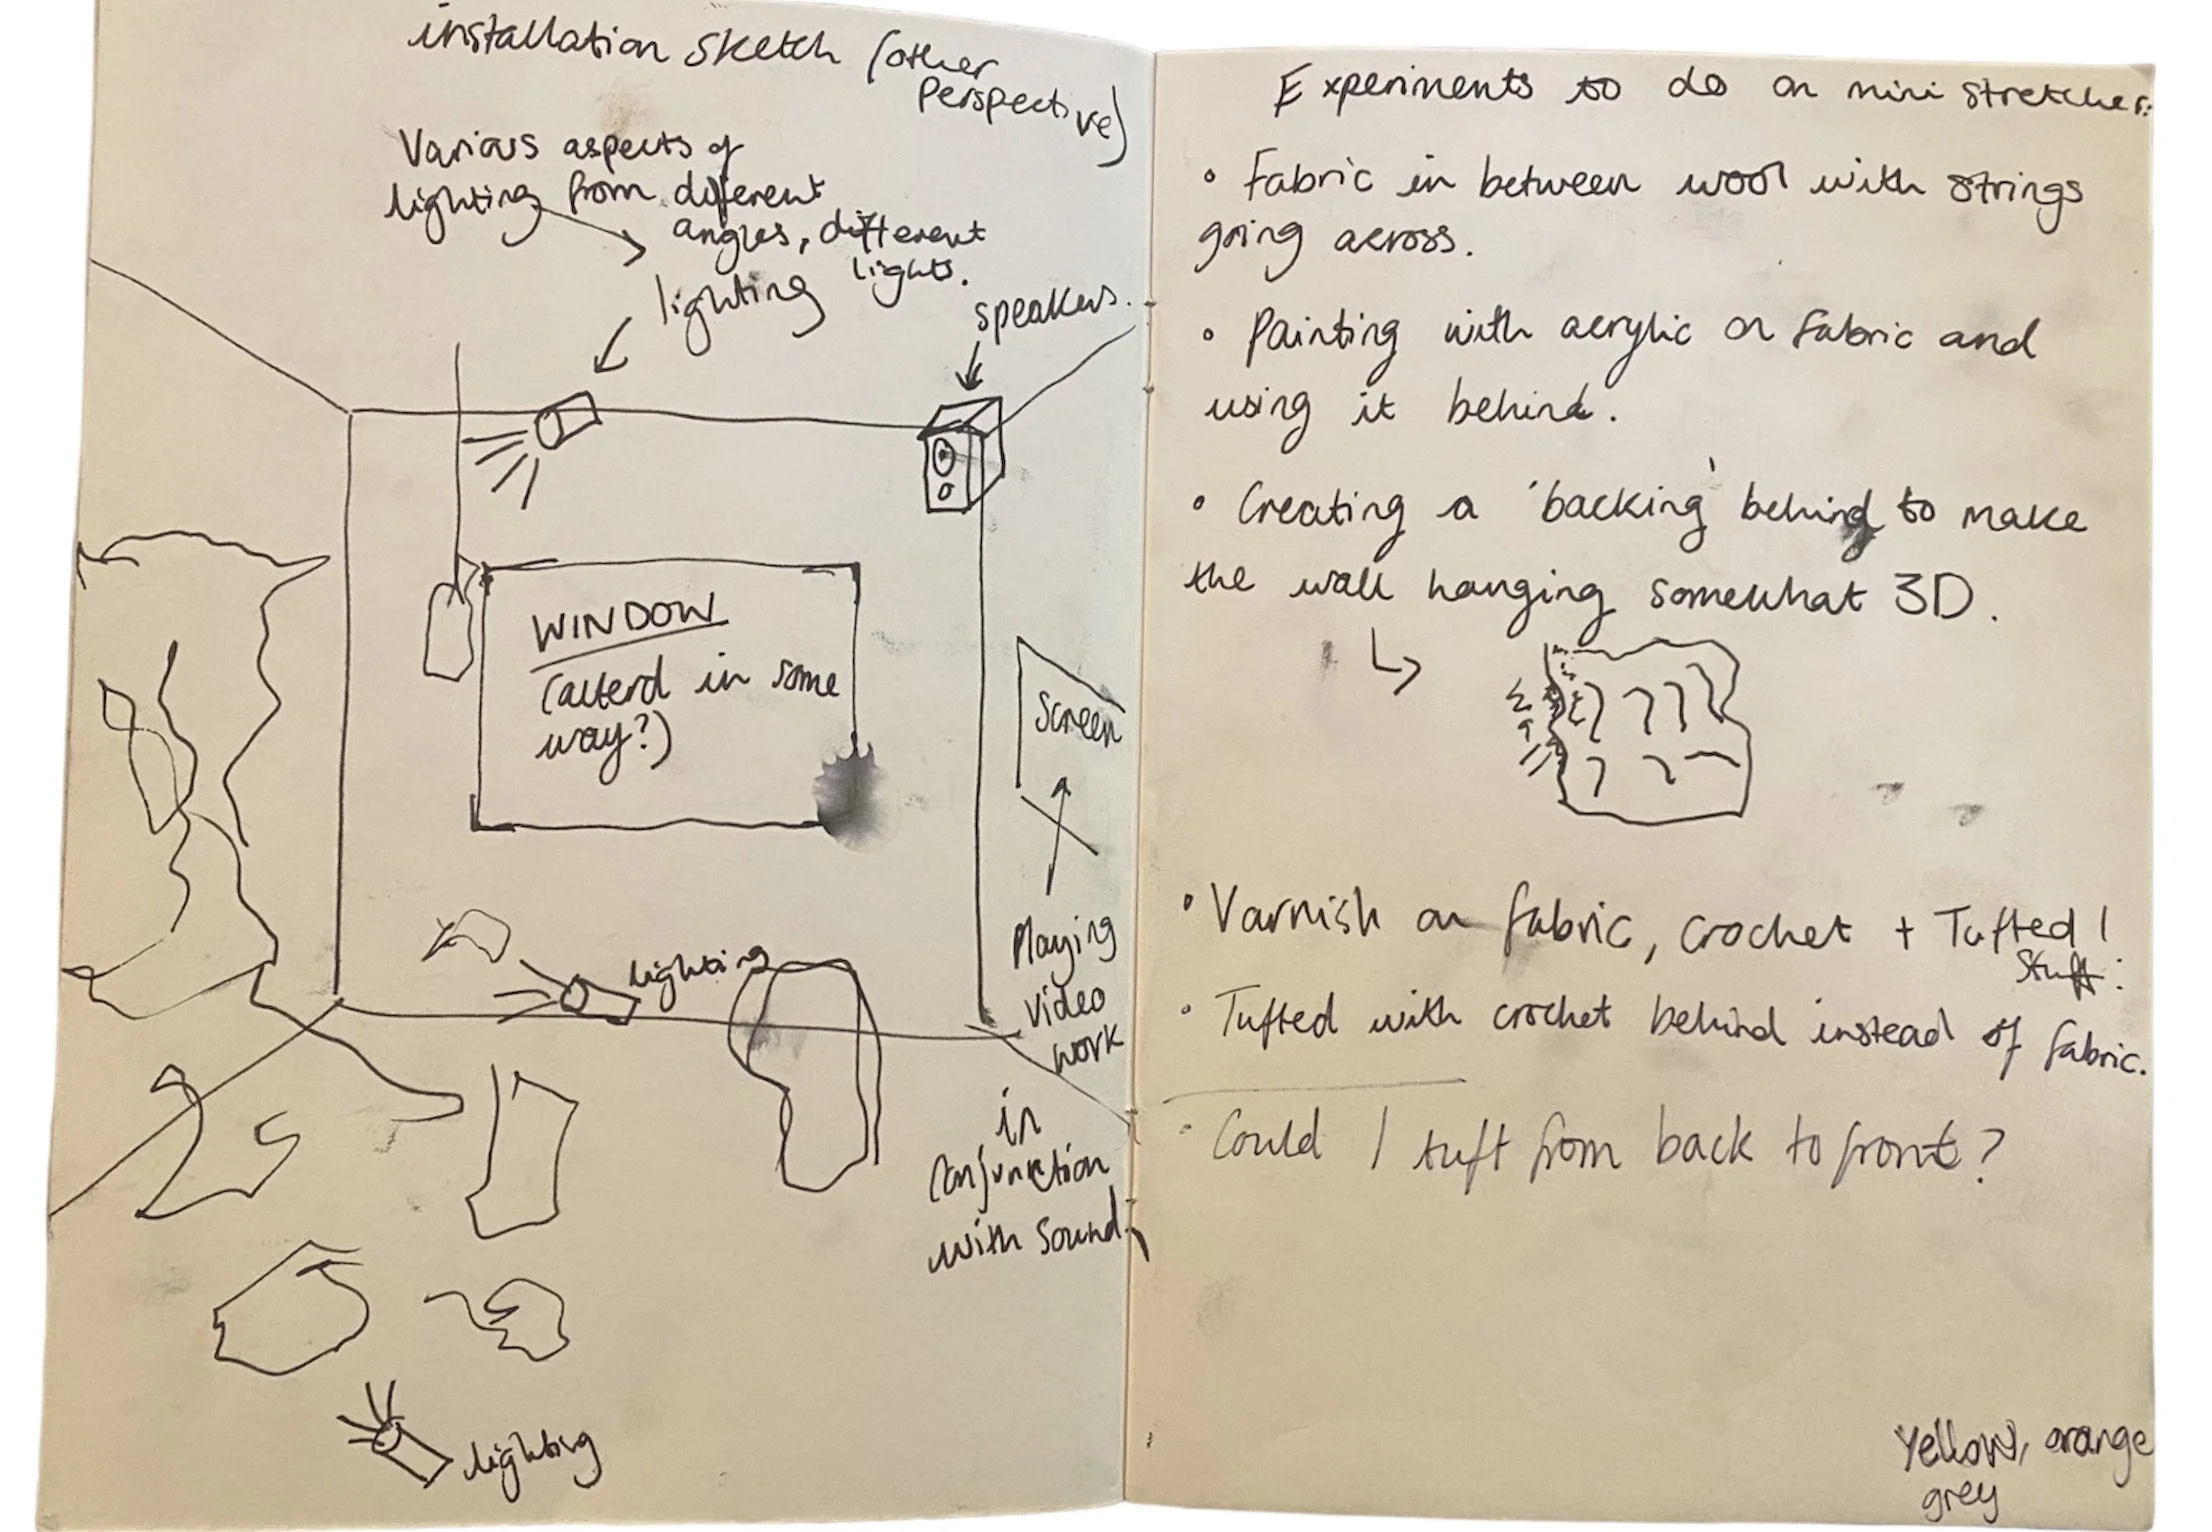 installation sketch (other
perspective)
Various aspects of
lighting from different
angles, different
lights.
lighting
speakers.
WINDOW
(alterd in some
way?)
Screen
Playing
video
work
in
conjunction
with sound
lighting
lighting
Experiments to do on mini stretcher:
• Fabric in between wool with strings
going across.
• Painting with acrylic on fabric and
using it behind.
• Creating a 'backing' behind to make
the wall hanging somewhat 3D.
• Varnish on fabric, crochet + Tufted
stuff.
• Tufted with crochet behind instead of fabric.
• Could I tuft from back to front?
Yellow, orange
grey